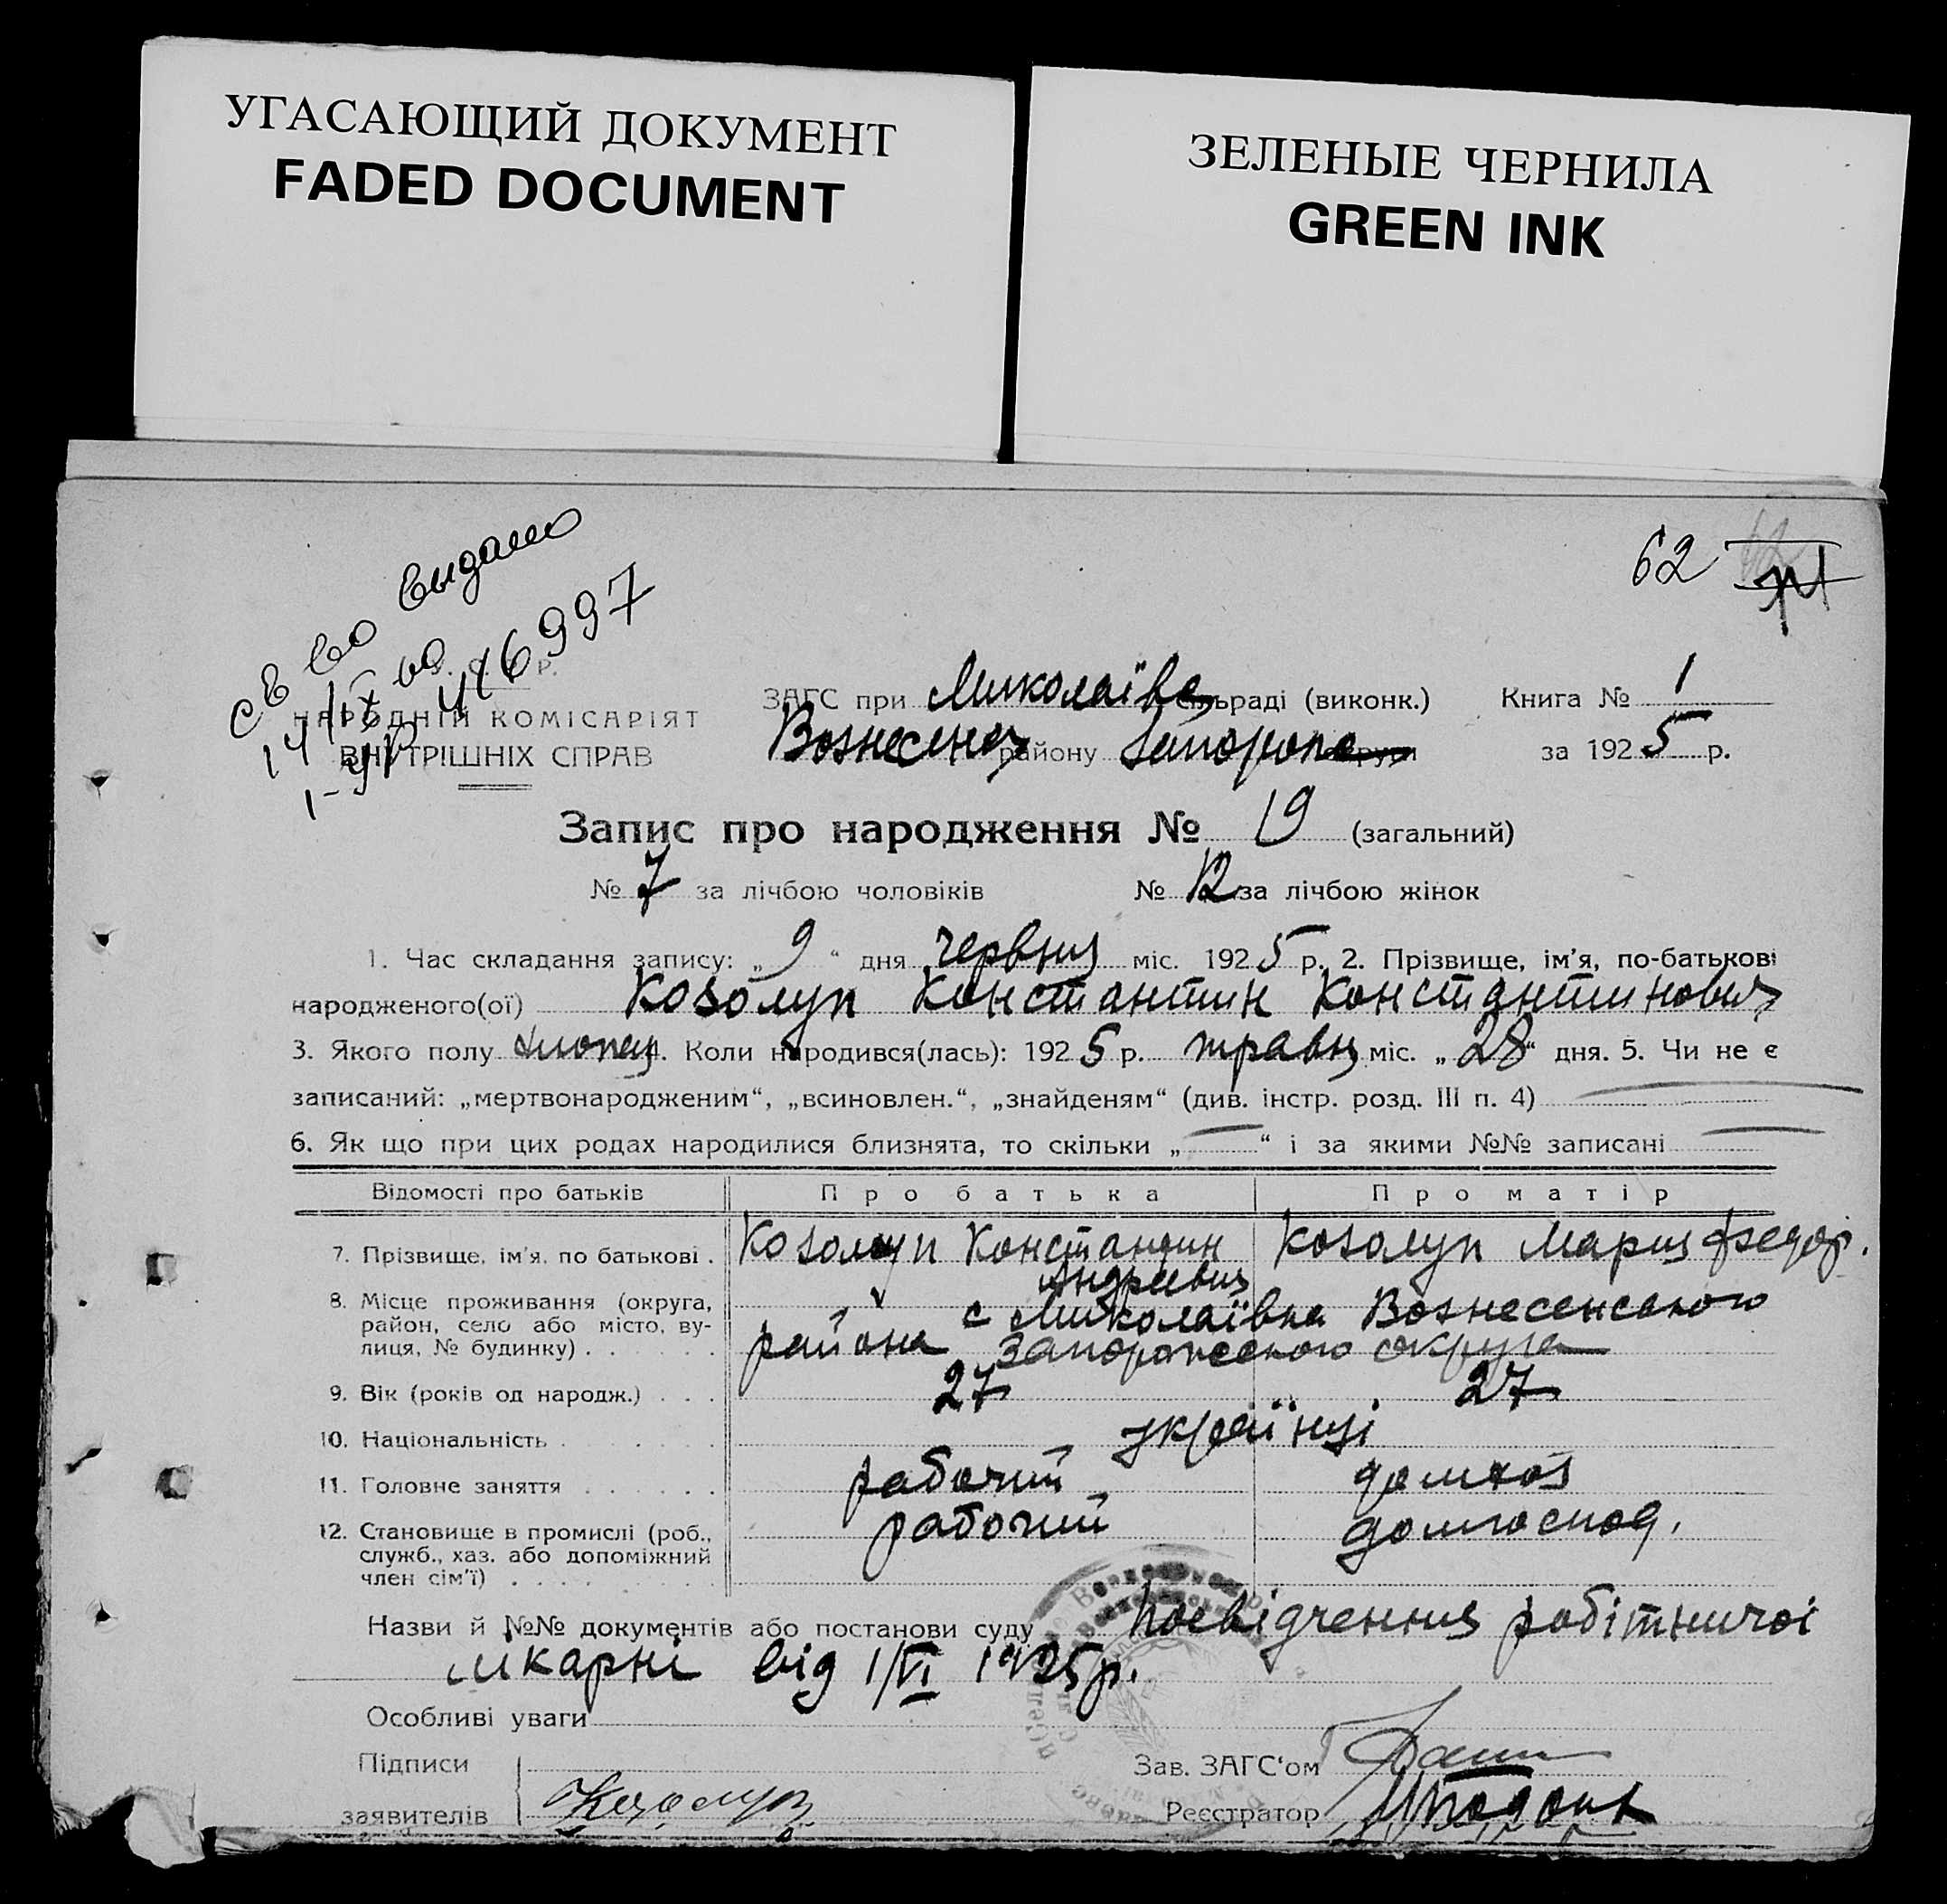 УГАСАЮЩИЙ ДОКУМЕНТ
FADED DOCUMENT
ЗЕЛЕНЫЕ ЧЕРНИЛА
GREEN INK
св во выдано
62
НАРОДНІЙ КОМІСАРІЯТ
ВНУТРІШНІХ СПРАВ
ЗАГС при Миколаївс сільраді (виконк.) Книга № 1
Вознесенс району Запорож округи за 1925 р.
Запис про народження № 19 (загальний)
№ 7 за лічбою чоловіків № 12 за лічбою жінок
1. Час складання запису: „9“ дня червня міс. 1925 р. 2. Прізвище, ім'я, по-батькові
народженого(ої) Козолуп Константин Константинович
3. Якого полу хлопец 4. Коли народився(лась): 1925 р. травня міс. „28“ дня. 5. Чи не є
записаний: „мертвонародженим“, „всиновлен.“, „знайденям“ (див. інстр. розд. III п. 4)
6. Як що при цих родах народилися близнята, то скільки „ “ і за якими №№ записані
Відомості про батьків Про батька Про матір
7. Прізвище, ім'я, по батькові . Козолуп Константин Андреевич Козолуп Мария Федор.
8. Місце проживання (округа, с Миколаївка Вознесенського
район, село або місто, ву-
лиця, № будинку) . района Запорожского округа
9. Вік (років од народж.) . . . 27 27
10. Національність . українці
11. Головне заняття рабочий домхоз
12. Становище в промислі (роб., рабочий домгоспод.
служб., хаз. або допоміжний
член сім'ї)
Назви й №№ документів або постанови суду Посвідчення робітничої
лікарні від 1/VI 1925 р.
Особливі уваги
Підписи
заявителів Козолуп
Зав. ЗАГС'ом
Реєстратор